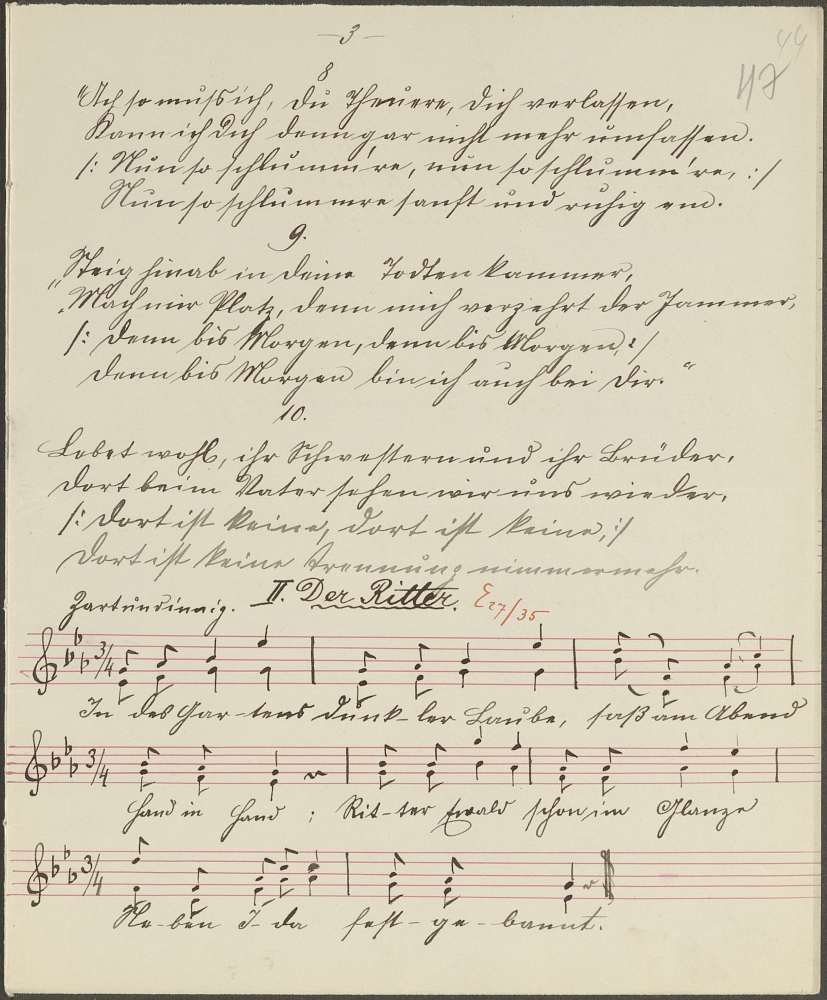 – 3 –
49
47
8
"Ach so muss ich, Du Theuere, Dich verlassen,
Kann ich Dich denn gar nicht mehr umfassen.
/: Nun so schlumm're, nun so schlumm're, :/
Nun so schlummre sanft und ruhig ein.
9.
"Steig hinab in deine Todtenkammer,
Mach mir Platz, denn mich verzehrt der Jammer,
/: Denn bis Morgen, denn bis Morgen, :/
Denn bis Morgen bin ich auch bei Dir."
10.
Lebet wohl, ihr Schwestern und ihr Brüder.
Dort beim Vater sehen wir uns wieder.
/: Dort ist keine, dort ist keine, :/
Dort ist keine Trennung nimmermehr.
Zart und innig. II. Der Ritter. E 27/35
3/4
In des Gar-tens dunk-ler Laube, saß am Abend
3/4
Hand in Hand ; Rit-ter Ewald schon im Glanze
3/4
Ne-ben I-da fest-ge-bannt.